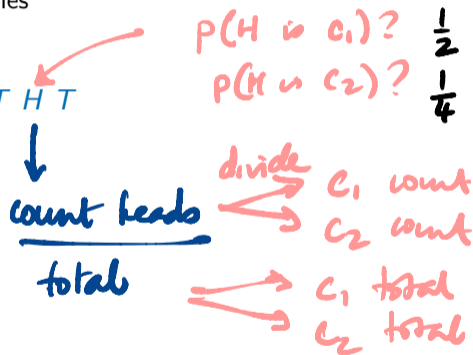 P(H is C1)? 1/2
P(H is C2)? 1/4
T H T
divide
count heads
total
C1 count
C2 count
C1 total
C2 total